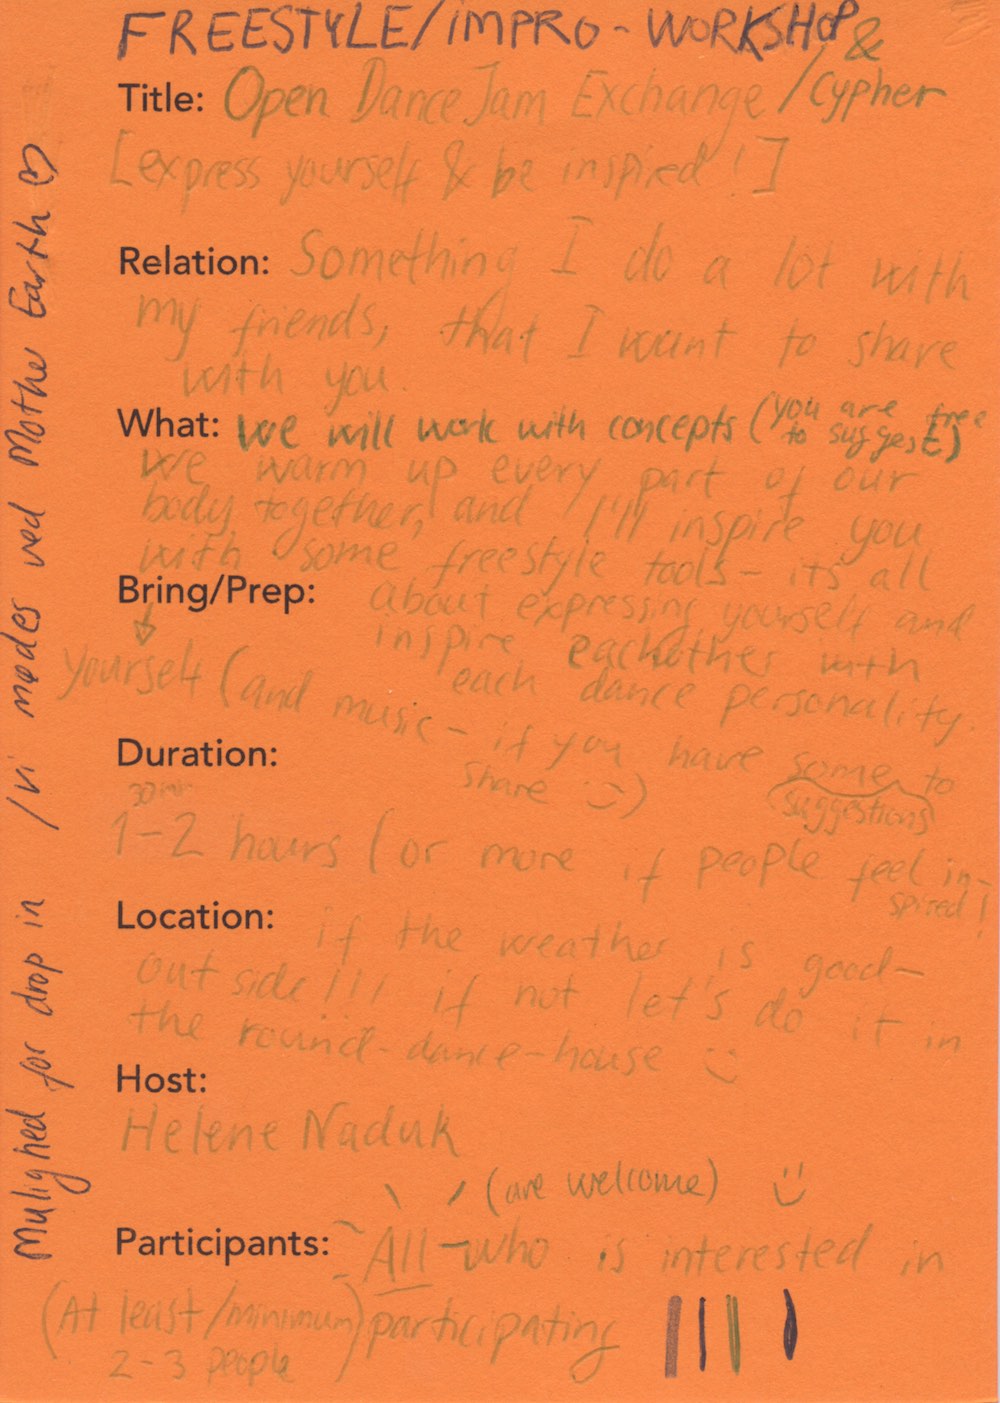 FREESTYLE/IMPRO-WORKSHOP &
Title: Open Dance Jam Exchange /Cypher
[express yourself & be inspired!]
Relation: Something I do a lot with
my friends, that I want to share
with you.
What: We will work with concepts (you are free
to suggest)
We warm up every part of our
body together, and I'll inspire you
with some freestyle tools - its all
about expressing yourself and
inspire eachother with
each dance personality.
Bring/Prep:
yourself (and music - if you have some to
suggestions
share :))
Duration:
30 min
1-2 hours (or more if people feel in-
spired!
Location: if the weather is good-
outside!!! if not let's do it in
the round-dance-house :)
Host:
Helene Naduk
(are welcome) :)
Participants: All - who is interested in
participating
(At least/minimum)
2-3 people
Mulighed for drop in /vi mødes ved Mothe Earth ♡